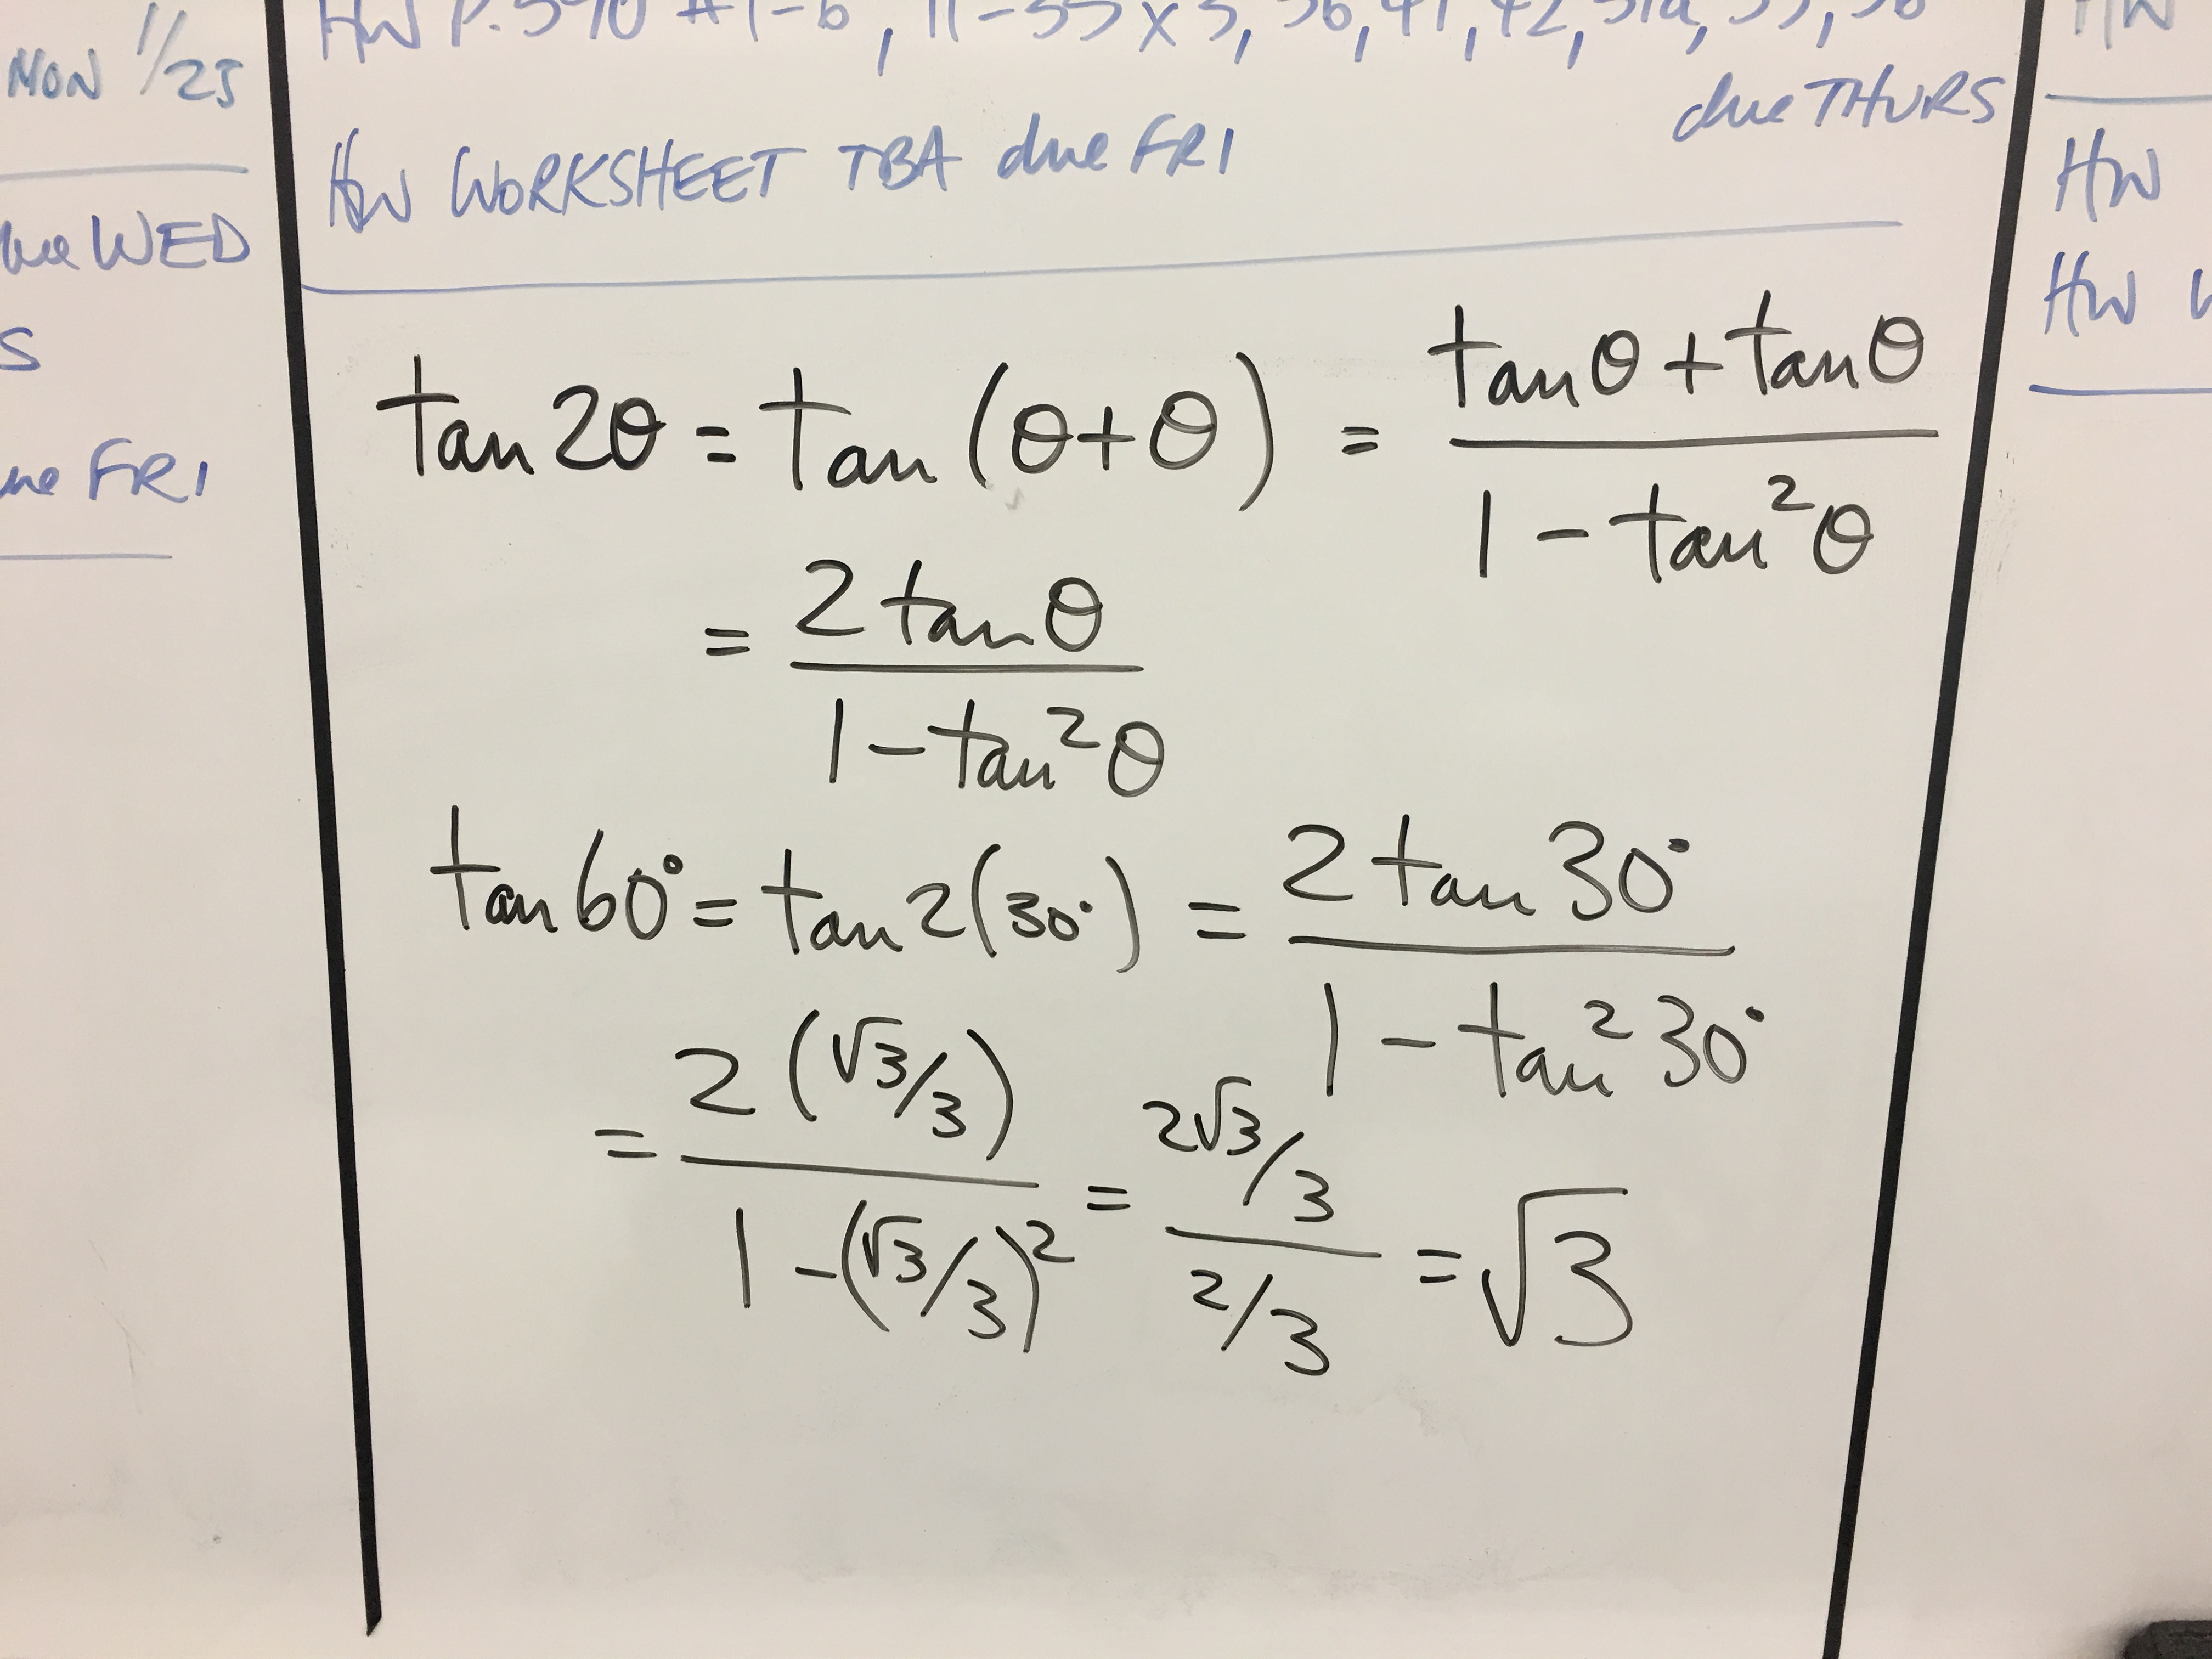 MON 1/25
WED
S
FRI
HW
due THURS
HW WORKSHEET TBA due FRI
tan 2θ = tan (θ+θ) = (tan θ + tan θ) / (1 - tan²θ)
= (2 tan θ) / (1 - tan²θ)
tan 60° = tan 2(30°) = (2 tan 30°) / (1 - tan² 30°)
= (2 (√3/3)) / (1 - (√3/3)²) = (2√3/3) / (2/3) = √3
HW
HW
HW